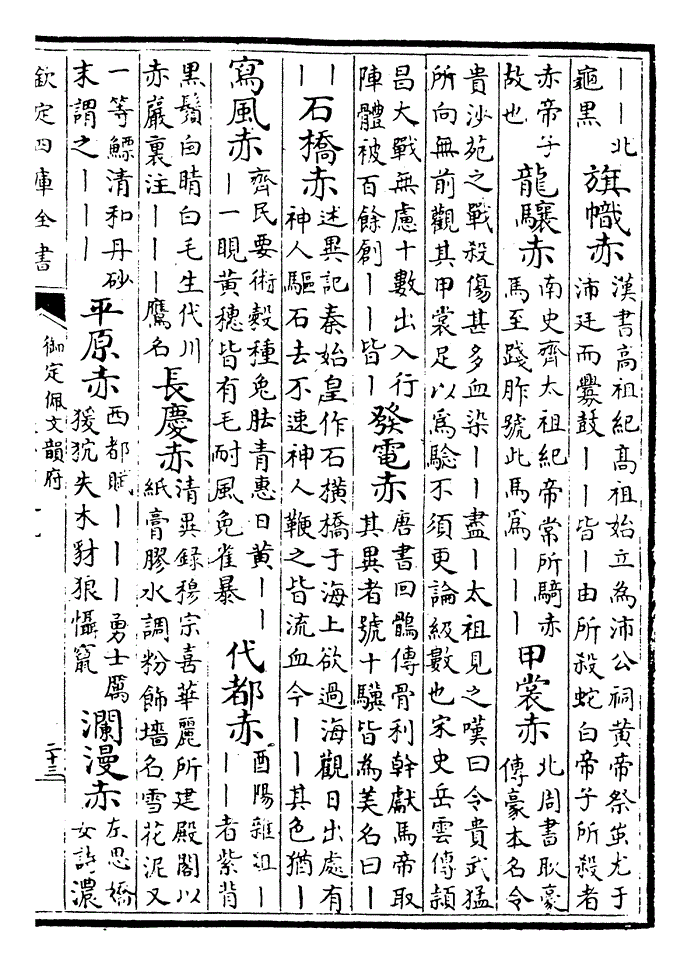 ｜｜北
龜黑
旗幟赤
漢書高祖紀高祖始立為沛公祠黄帝祭蚩尤于
沛廷而釁鼓｜｜皆｜由所殺蛇白帝子所殺者
赤帝子
故也
龍驤赤
南史齊太祖紀帝常所騎赤
馬至踐胙號此馬爲｜｜｜
甲裳赤
北周書耿豪
傳豪本名令
貴沙苑之戰殺傷甚多血染｜｜盡｜太祖見之嘆曰令貴武猛
所向無前觀其甲裳足以爲驗不須更論級數也宋史岳雲傳頴
昌大戰無慮十數出入行
陣體被百餘創｜｜皆｜
發電赤
唐書回鶻傳骨利幹獻馬帝取
其異者號十驥皆為美名曰｜
｜
｜
石橋赤
述異記秦始皇作石橫橋于海上欲過海觀日出處有
神人驅石去不速神人鞭之皆流血今｜｜其色猶｜
寫風赤
齊民要術榖種兔胠青惠日黄｜｜
｜一晛黄穗皆有毛耐風免雀暴
代都赤
酉陽雜俎｜
｜｜者紫背
黑鬚白睛白毛生代川
赤巖裏注｜｜｜鷹名
長慶赤
清異録穆宗喜華麗所建殿閣以
紙膏膠水調粉飾墻名雪花泥又
一等鰾清和丹砂
末謂之｜｜｜
平原赤
西都賦｜｜｜勇士厲
猨狖失木豺狼懾竄
瀾漫赤
左思嬌
女詩濃
欽定四庫全書
御定佩文韻府
二十三